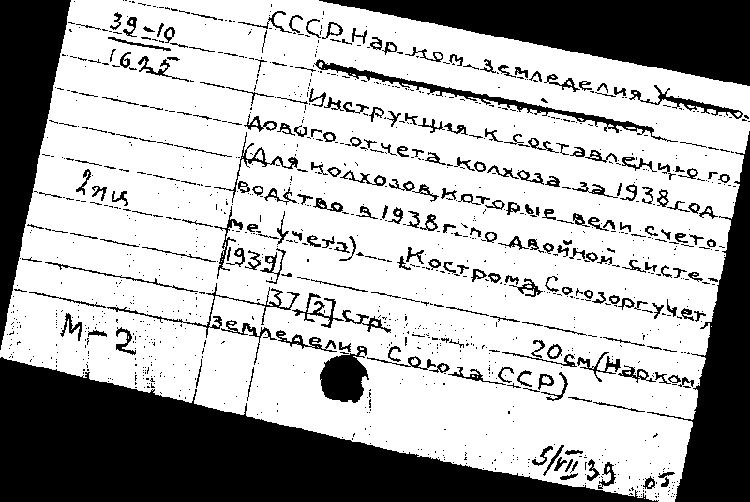 39-10
1625
СССР. Нар. ком. земледелия. Учетно-
статистический отдел.
Инструкция к составлению го-
дового отчета колхоза за 1938 год
(Для колхозов, которые вели счето-
водство в 1938 г. по двойной систе-
ме учета). [Кострома], Союзоргучет,
[1939].
37, [2] стр. 20 см (Нар. ком.
земледелия Союза ССР)
2 пц
М-2
5/VII 39